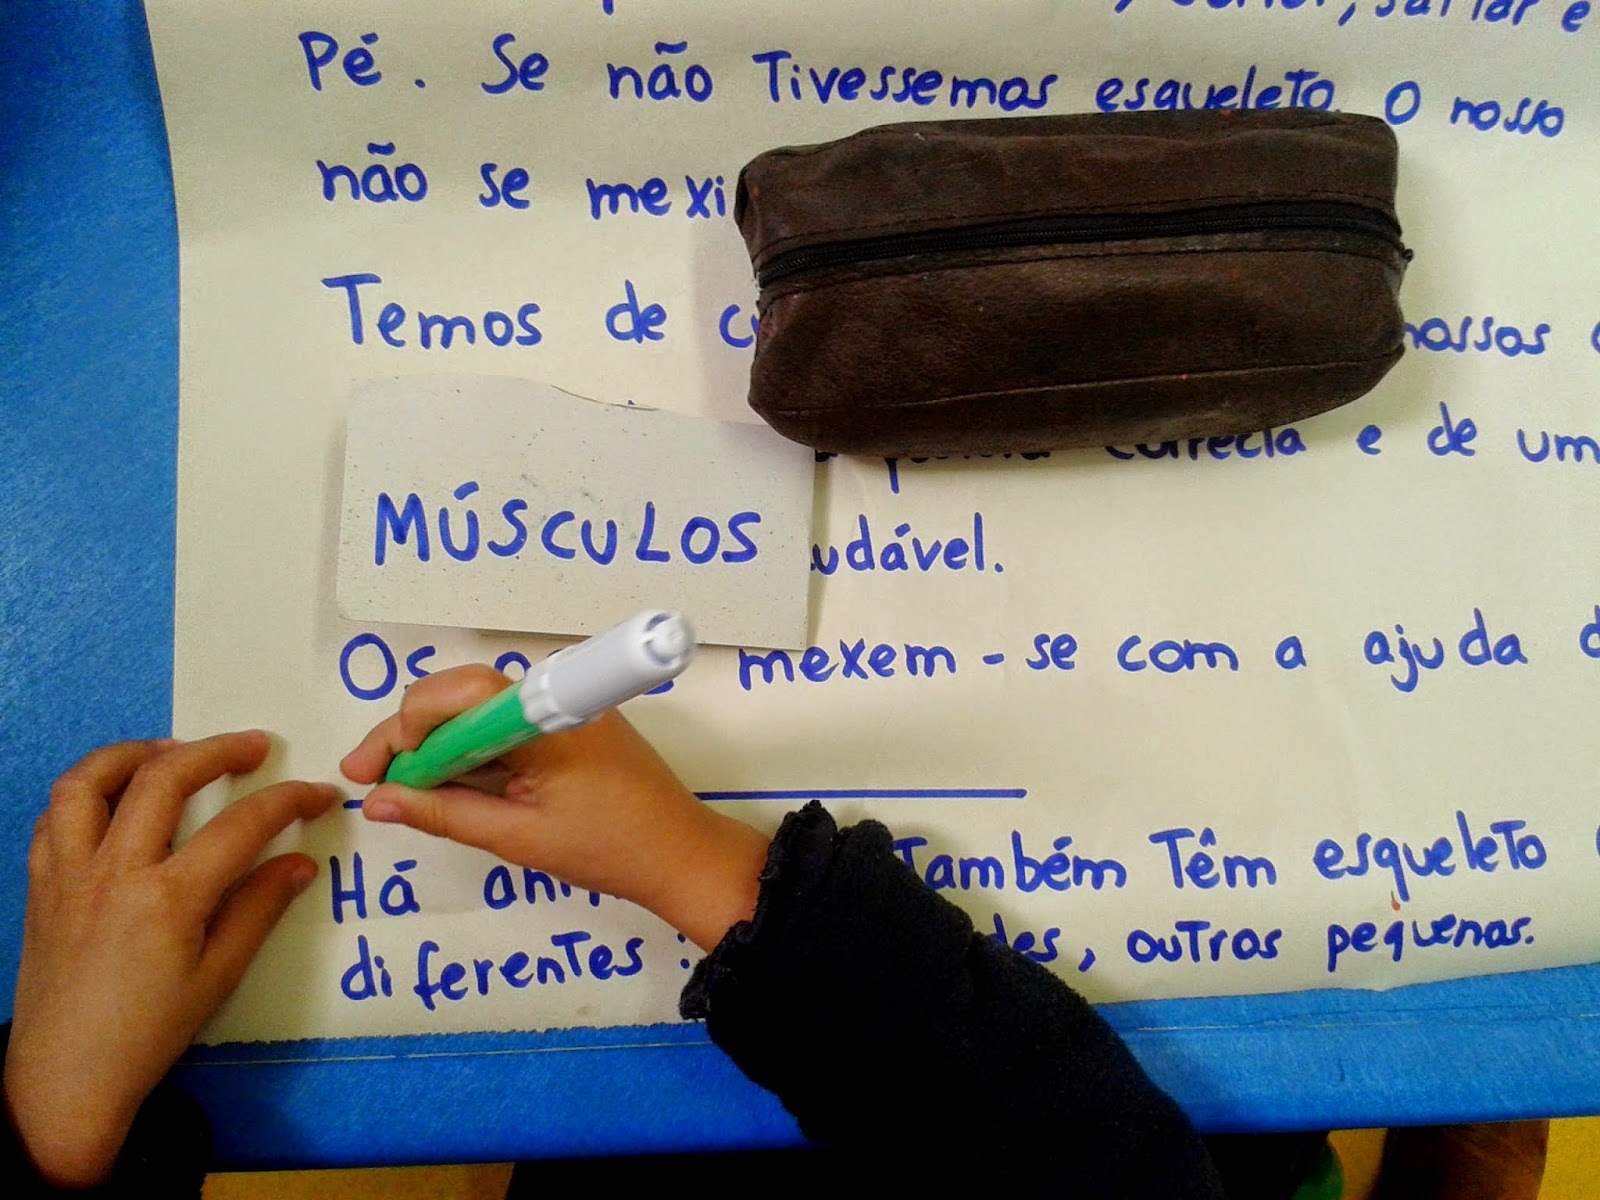 saltar e
Pé. Se não Tivessemos esqueleto, o nosso
não se mexi
Temos de nossos
correcta e de um
MÚSCULOS
udável.
Os mexem-se com a ajuda d
Há também Têm esqueleto
diferentes: des, outros pequenos.